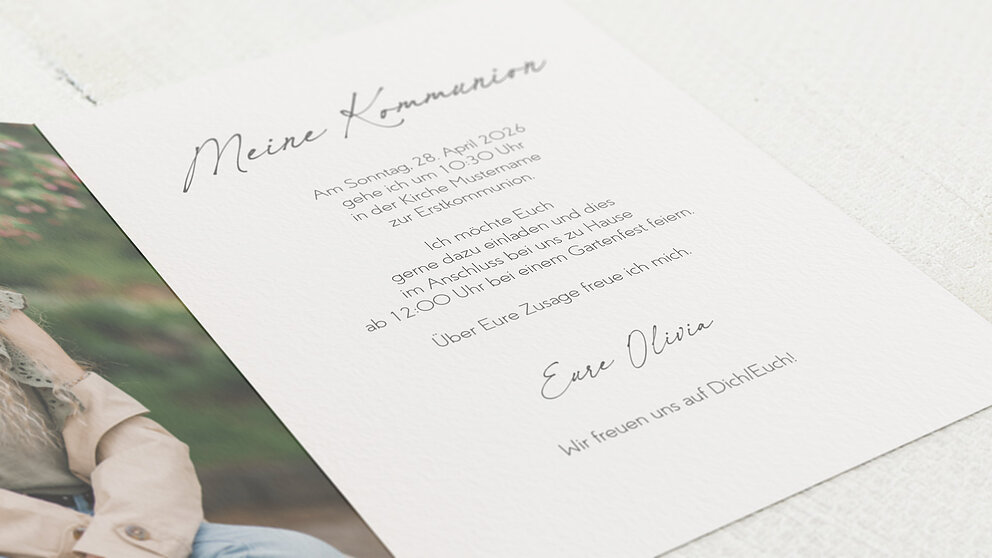 Meine Kommunion
Am Sonntag, 28. April 2026
gehe ich um 10:30 Uhr
in der Kirche Mustername
zur Erstkommunion.
Ich möchte Euch
gerne dazu einladen und dies
im Anschluss bei uns zu Hause
ab 12:00 Uhr bei einem Gartenfest feiern.
Über Eure Zusage freue ich mich.
Eure Olivia
Wir freuen uns auf Dich!Euch!